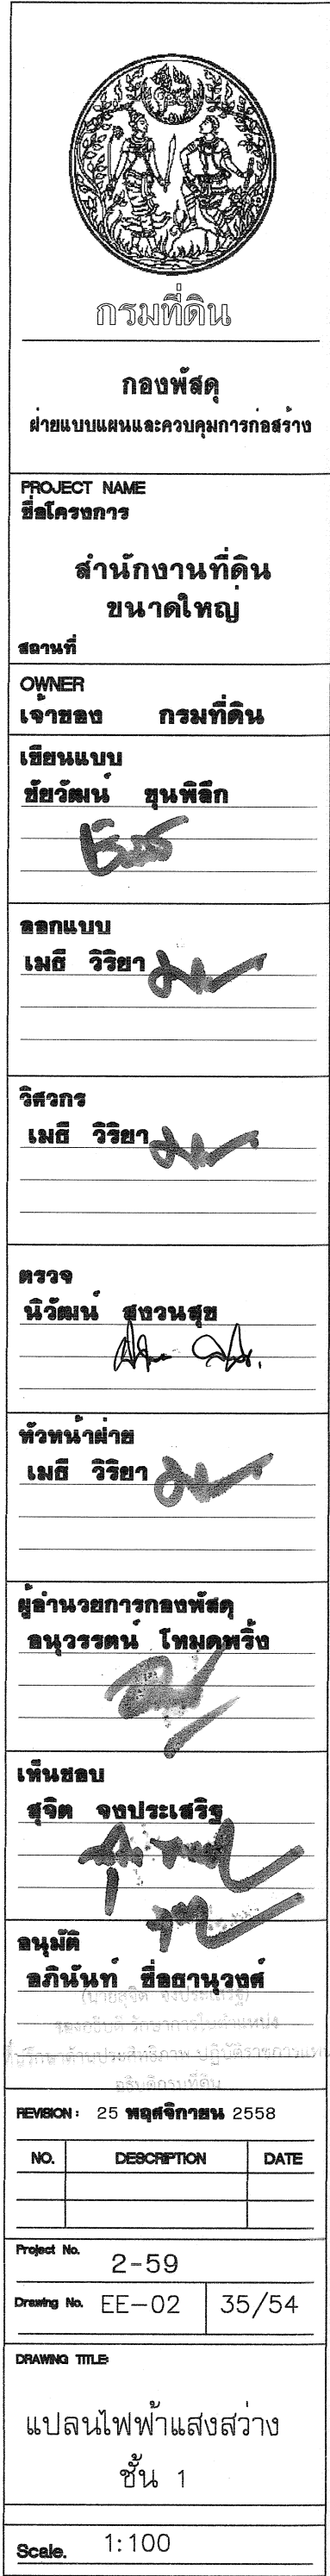 กรมที่ดิน
กองพัสดุ
ฝ่ายแบบแผนและควบคุมการก่อสร้าง
PROJECT NAME
ชื่อโครงการ
สำนักงานที่ดิน
ขนาดใหญ่
สถานที่
OWNER
เจ้าของ กรมที่ดิน
เขียนแบบ
ชัยวัฒน์ ขุนพิลึก
ออกแบบ
เมธี วิริยา
วิศวกร
เมธี วิริยา
ตรวจ
นิวัฒน์ สงวนสุข
หัวหน้าฝ่าย
เมธี วิริยา
ผู้อำนวยการกองพัสดุ
อนุวรรตน์ โหมดพริ้ง
เห็นชอบ
สุจิต จงประเสริฐ
อนุมัติ
อภินันท์ ซื่อธานุวงศ์
(นายสุจิต จงประเสริฐ)
รองอธิบดี รักษาการในตำแหน่ง
ที่ปรึกษาด้านประสิทธิภาพ ปฏิบัติราชการแทน
อธิบดีกรมที่ดิน
REVISION : 25 พฤศจิกายน 2558
NO. DESCRIPTION DATE
Project No. 2-59
Drawing No. EE-02 35/54
DRAWING TITLE:
แปลนไฟฟ้าแสงสว่าง
ชั้น 1
Scale. 1:100